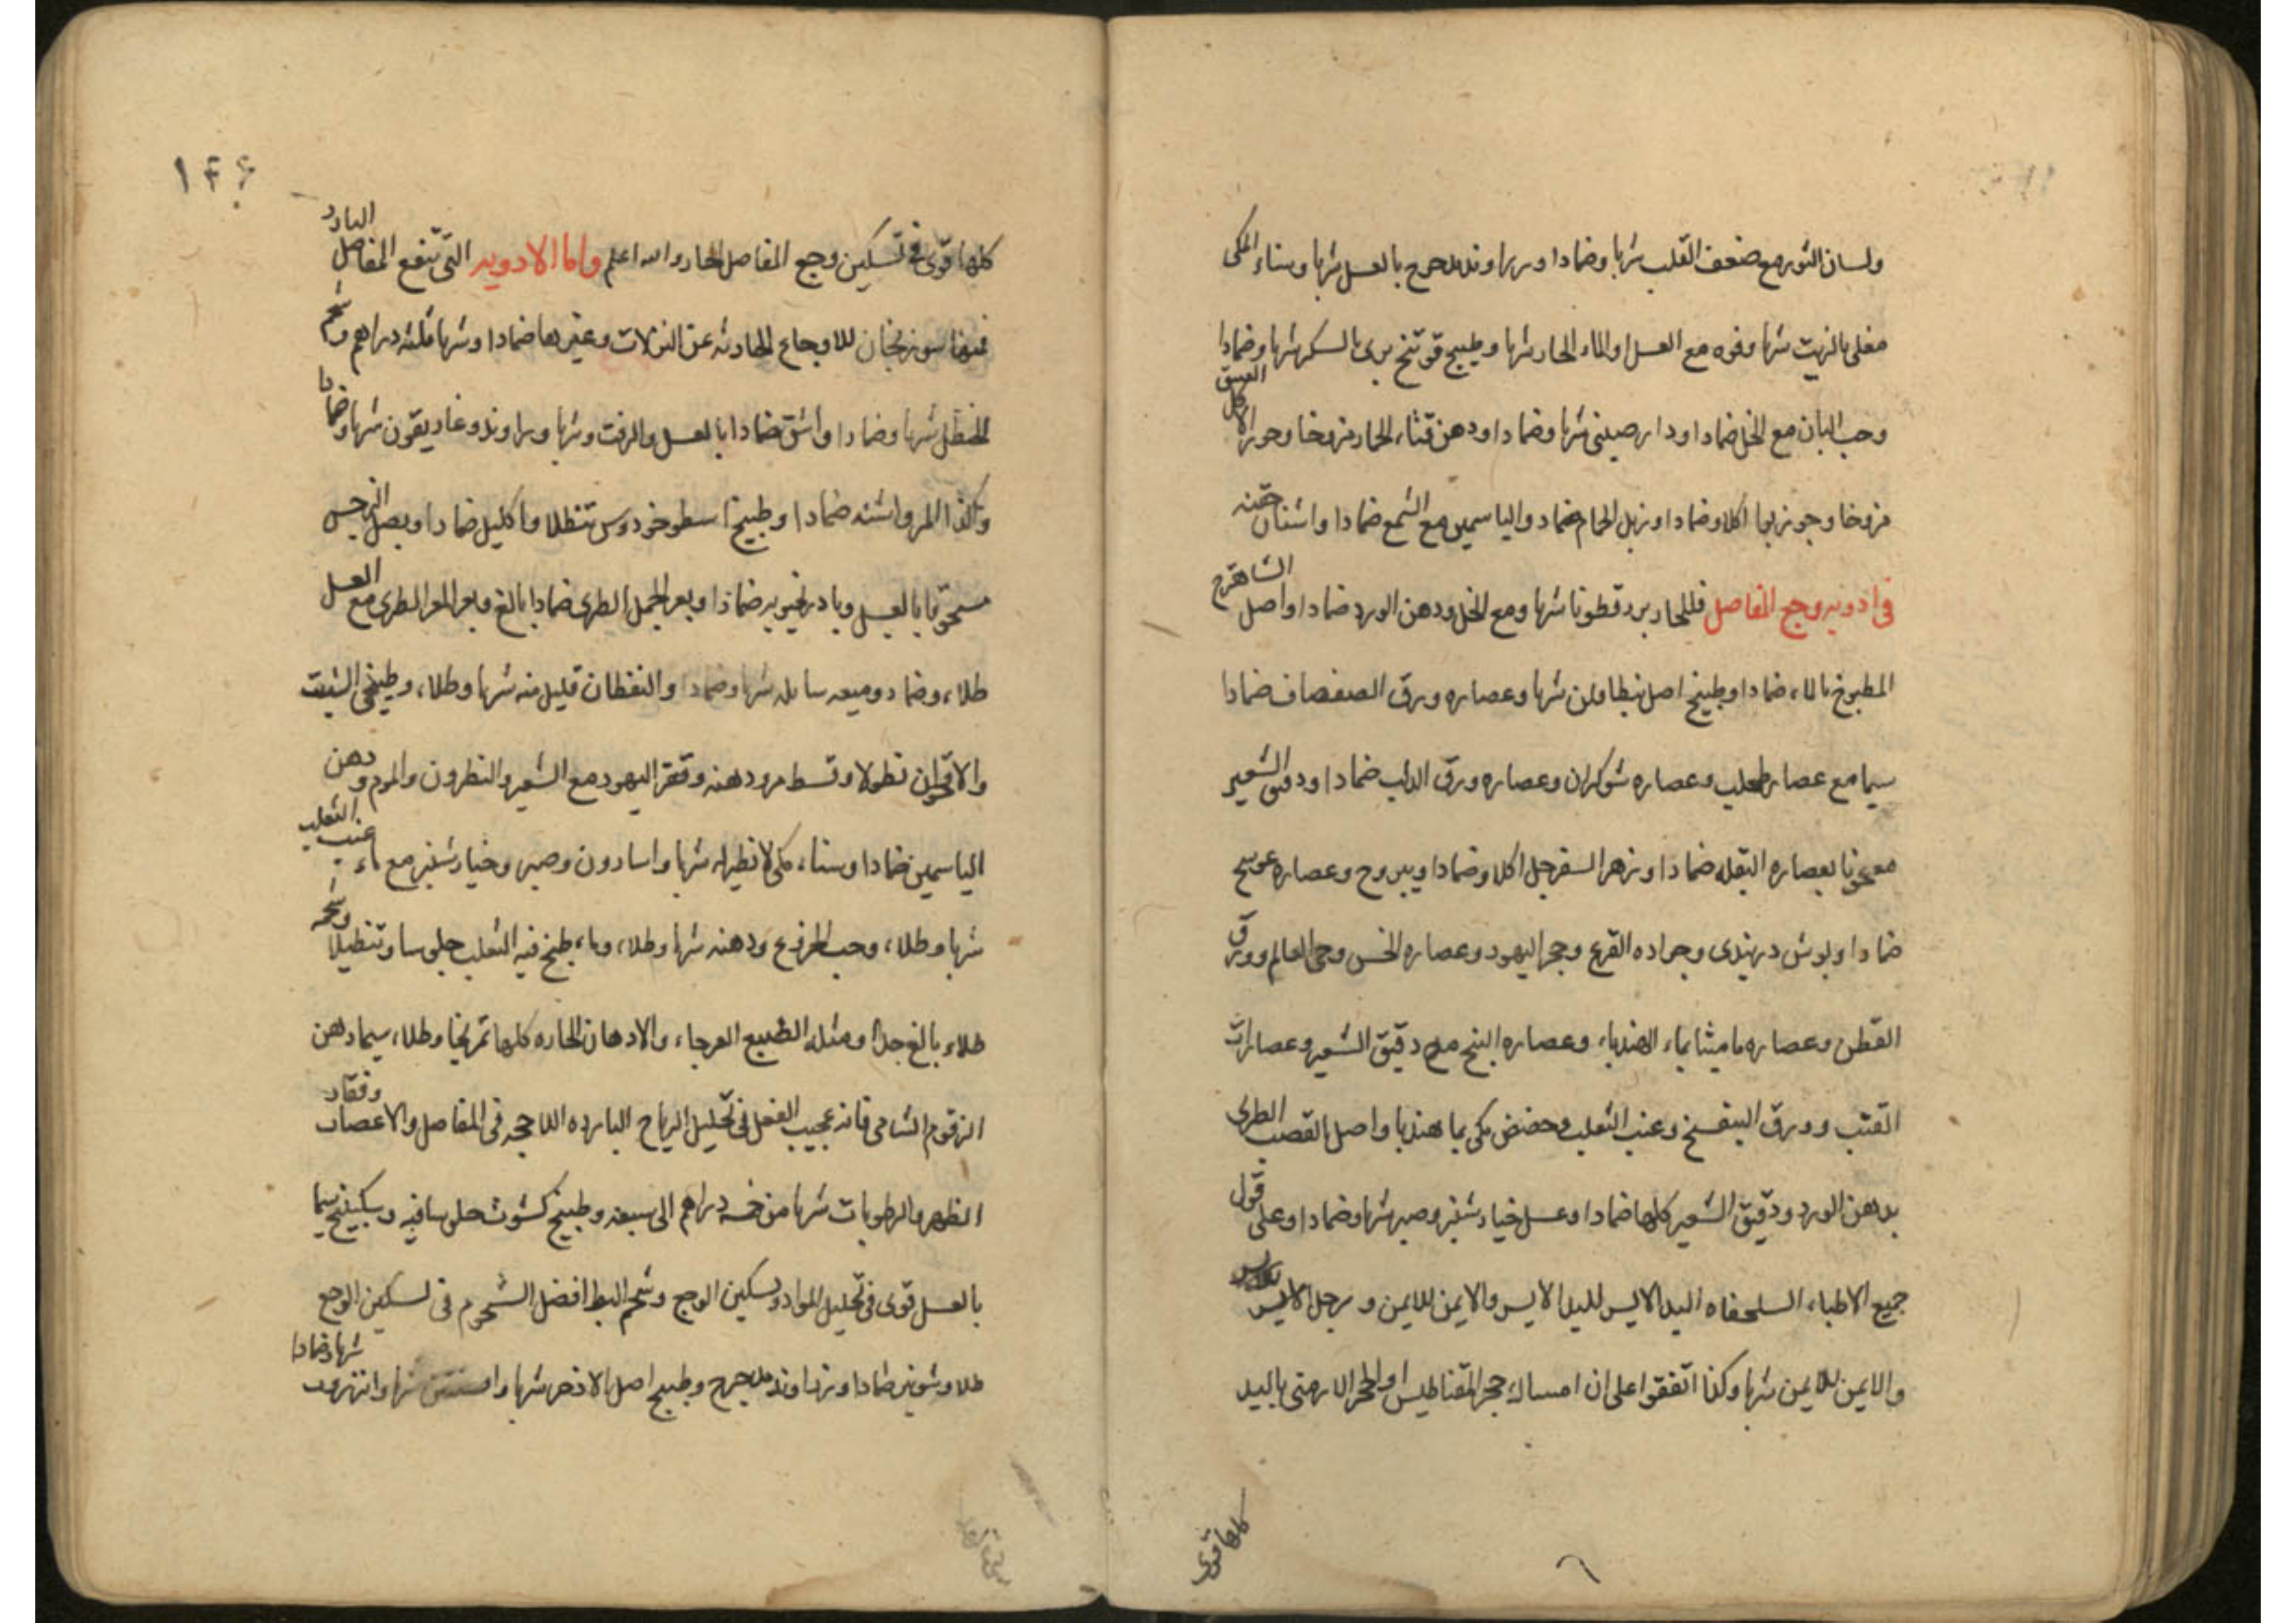 ولسان الثور مع ضعف القلب شربا وضمادا وزراوند مدحرج بالعسل شربا وسناء المكى
مغلى بالزيت شربا وفوه مع العسل او الماء الحار شربا وطبيخ فوتنج برى بالسكر شربا وضمادا
وحب البان مع الخل ضمادا ودارصينى شربا وضمادا ودهن قثاء الحمار مروخا وجوز الاكل العتيق
مروخا وجوز بوا اكلا وضمادا وزبل الحمام ضماد والياسمين مع الشمع ضمادا واشنان حقنه
فى ادويه وجع المفاصل فللحار بزر قطونا شربا ومع الخل ودهن الورد ضمادا واصل الشاهترج
المطبوخ بالماء ضمادا وطبيخ اصل شربا وعصاره ورق الصفصاف ضمادا
سيما مع عصاره طحلب وعصاره شوكران وعصاره ورق الدلب ضمادا ودقيق الشعير
معجونا بعصاره البقله ضمادا وزهر السفرجل اكلا وضمادا ويبروح وعصاره عوسج
ضمادا وبوش دربندى وجراده القرع وحجر اليهود وعصاره الخس وحى العالم وورق
القطن وعصاره ماميثا بماء الهندباء وعصاره البنج مع دقيق الشعير وعصارات
القنب وورق البنفسج وعنب الثعلب وحضض مكى بما هندبا واصل القصب الطرى
بدهن الورد ودقيق الشعير كلها ضمادا وعسل خيارشنبر وصبر شربا وضمادا وعلى قول
جميع الاطباء السلحفاه اليد الايسر لليد الايسر والايمن للايمن و رجل الايسر
والايمن للايمن شربا وكذا اتفقوا على ان امساك حجر المقناطيس او الحجر الارمنى باليد
كلها قوى
١۴۶
كلها قوى فى تسكين وجع المفاصل الحار والله اعلم واما الادويه التى تنفع المفاصل البارد
فمنها سورنجان للاوجاع الحادثه عن النزلات وغيرها ضمادا وشربا ثلثه دراهم وشحم
الحنظل شربا وضمادا واشق ضمادا بالعسل والزفت وشربا وراوند وغاريقون شربا وضمادا
وكذا المر واشنه ضمادا وطبيخ اسطوخودوس تنطلا واكليل ضمادا وبصل النرجس
مسحوقا بالعسل وبادرنجبويه ضمادا وبعر الجمل الطرى ضمادا بالغ وبعر المعز الطرى مع العسل
طلاء وضماد وميعه سايله شربا وضمادا والنفطان قليل منه شربا وطلاء وطبيخى الشبت
والاقحوان نطولا وقسط مر ودهنه وقفر اليهود مع الشعير والنطرون والموم ودهن
الياسمين ضمادا وسناء مكى لا نظير له شربا واسارون وصبر وخيارشنبر مع ماء عنب الثعلب
شربا وطلاء وحب الخروع ودهنه شربا وطلاء وماء طبخ فيه الثعلب جلوسا وتنطيلا وشحمه
طلاء بالغ جدا ومثله الضبع العرجاء والادهان الحاره كلها تمريخا وطلاء سيما دهن
الزقوم الشامى فانه عجيب الفعل فى تحليل الرياح البارده اللاحجه فى المفاصل والاعصاب وفقار
الظهر والرطوبات شربا من خمسه دراهم الى سبعه وطبيخ كشوث جلوسا فيه وسكبينج سيما
بالعسل قوى فى تحليل المواد وتسكين الوجع وشحم البط افضل الشحوم فى تسكين الوجع
طلا وشونيز ضمادا وزراوند مدحرج وطبيخ اصل الاذخر شربا وافسنتين شربا وانزروت شربا وضمادا